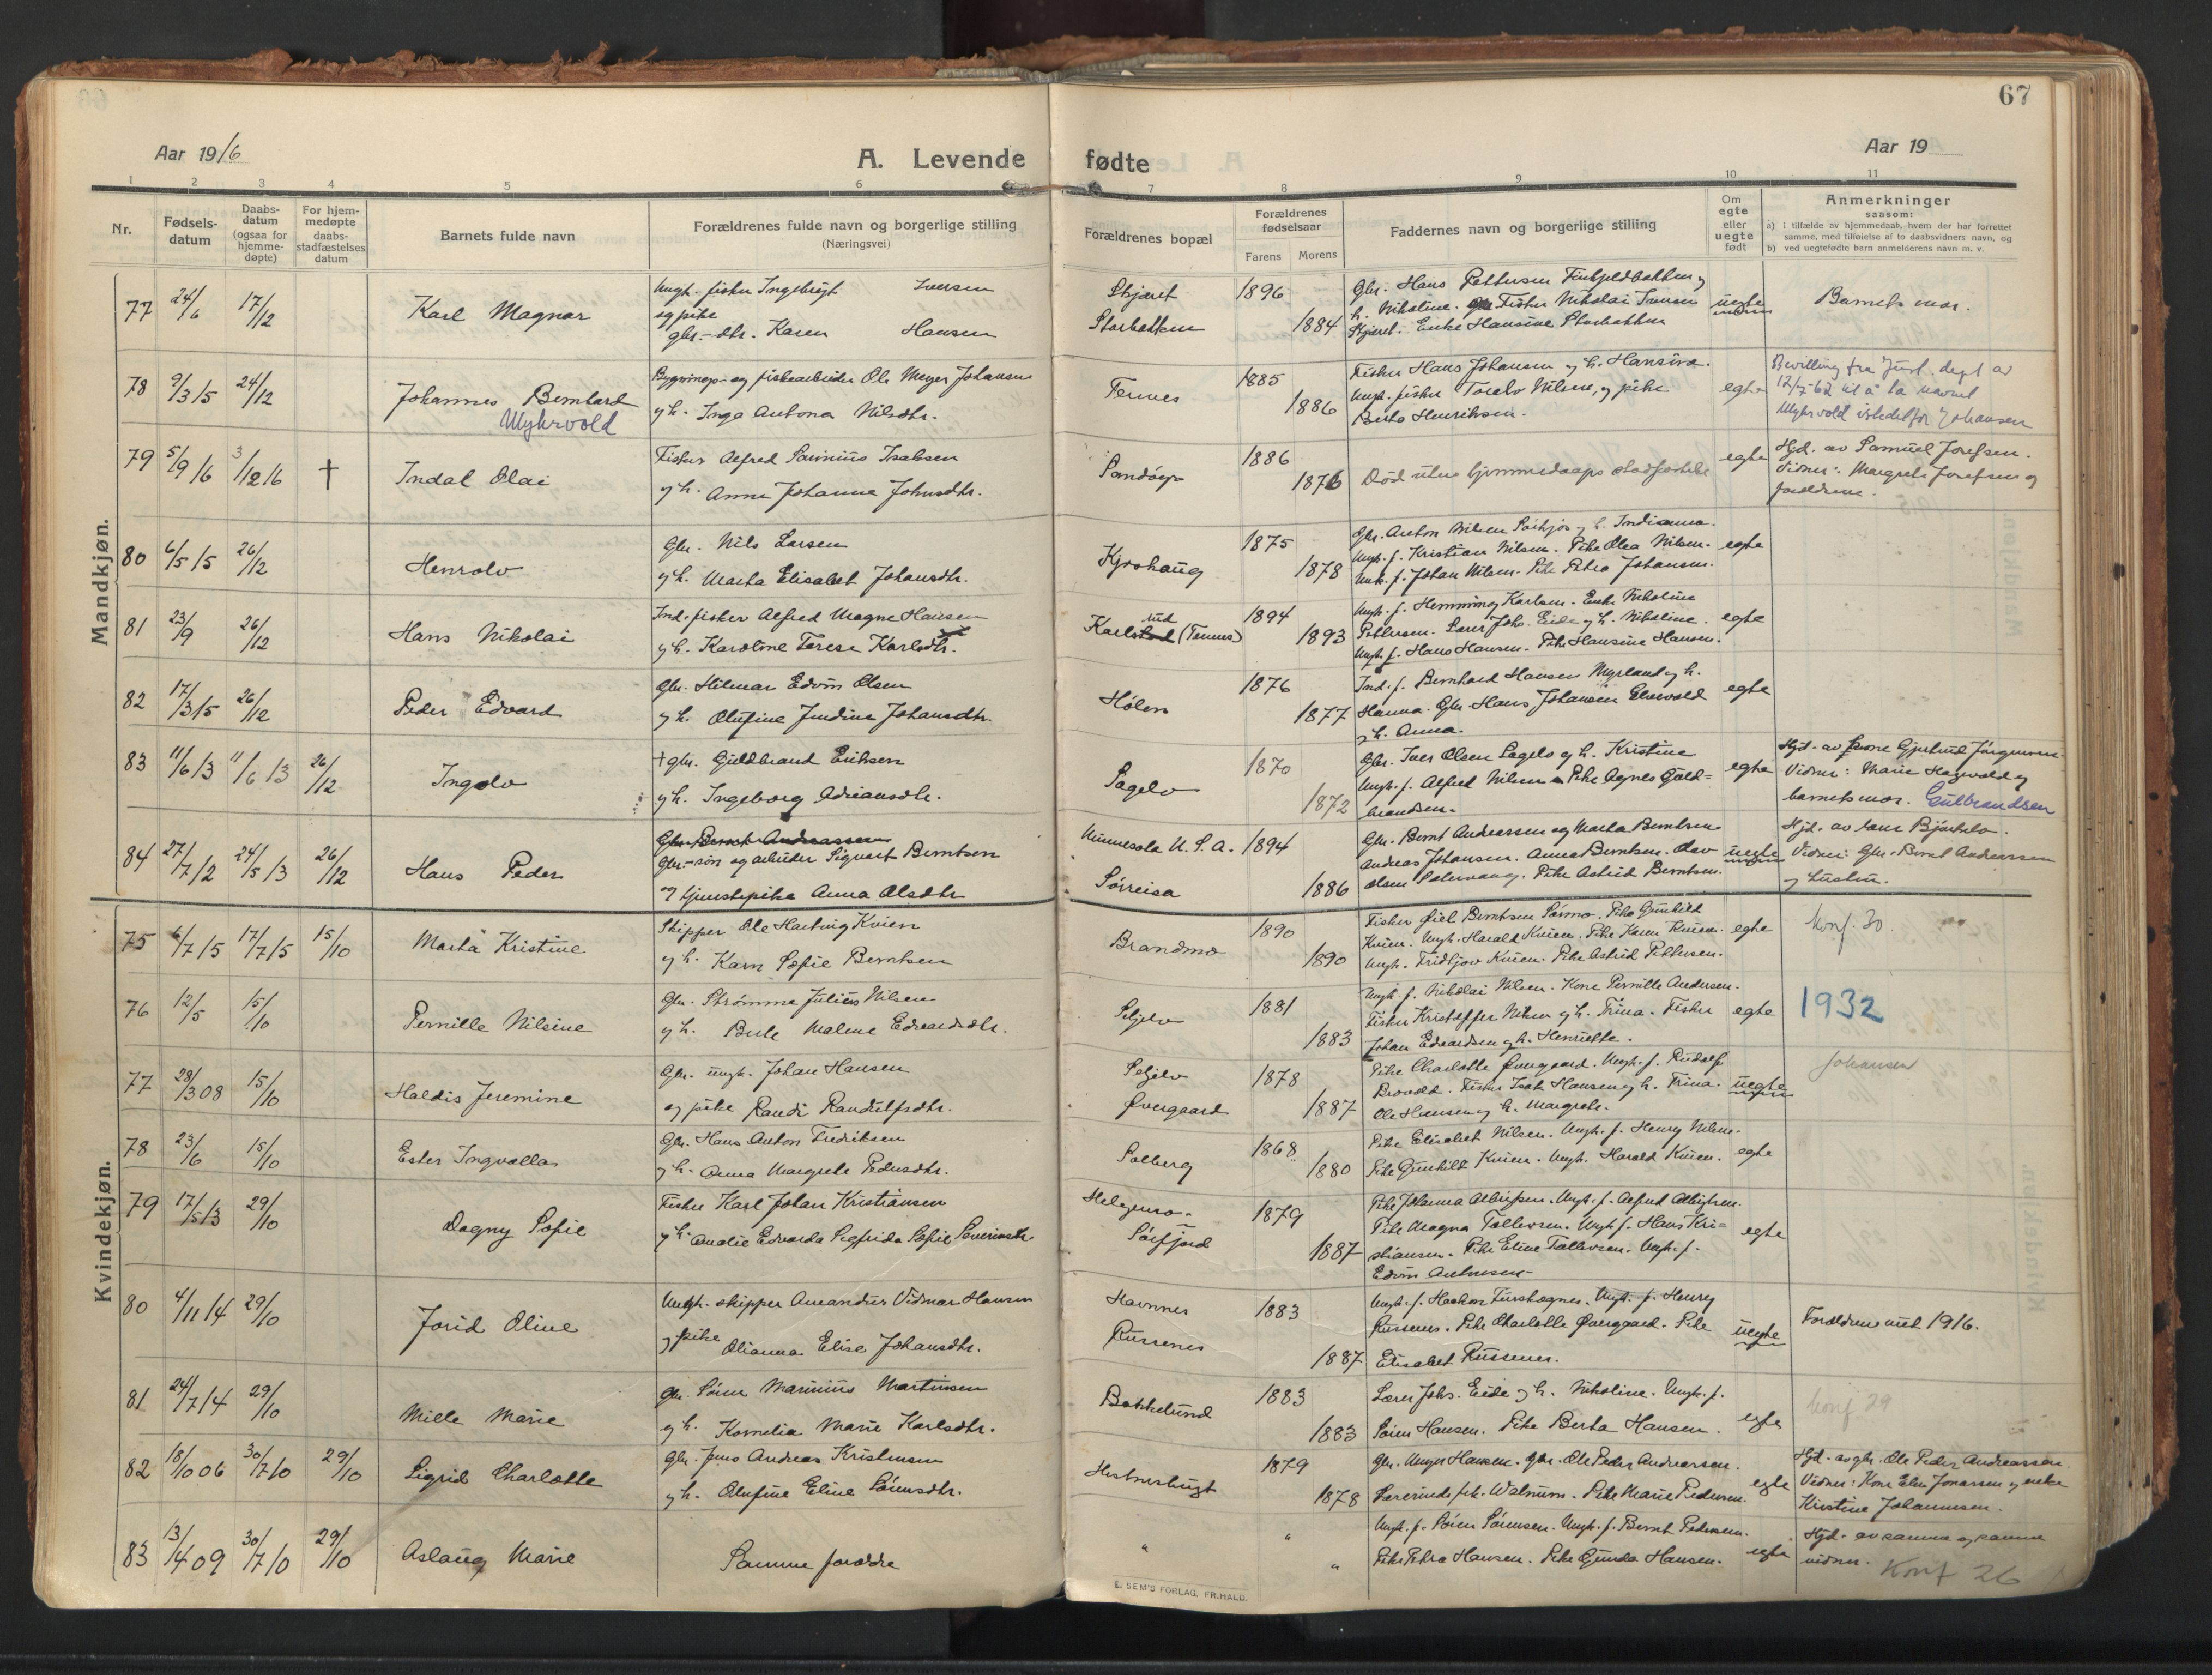 67
Aar 1916
A. Levende fødte
Aar 19
1 2 3 4 5 6 7 8 9 10 11
Nr.
Fødsels-
datum
Daabs-
datum
(ogsaa for
hjemme-
døpte)
For hjem-
medøpte
daabs-
stadfæstelses
datum
Barnets fulde navn
Forældrenes fulde navn og borgerlige stilling
(Næringsvei)
Forældrenes bopæl
Forældrenes
fødselsaar
Farens Morens
Faddernes navn og borgerlige stilling
Om
egte
eller
uegte
født
Anmerkninger
saasom:
a) i tilfælde av hjemmedaab, hvem der har forrettet
samme, med tilføielse af to daabsvidners navn, og
b) ved uegtefødte barn anmelderens navn m. v.
Mandkjøn.
77 24/6 17/12 Karl Magnar
Ungk. fisker Ingebrigt Iversen
og pike
gbr.-dtr. Karen Hansen
1896
1884
Gbr. Hans Pettersen
h. Nikoline. Fisker Nikolai Iversen
Enke Hansine Storbakken
uegte
Barnets mor.
78 9/3 15 24/12 Johannes Bernhard
Myhrvold
og fiskearbeider Ole Meyer Johansen
og h. Inga Antona Nilsdtr.
Tennes
1885
1886
Fisker Hans Johansen og h. Hansine.
Ungk. fisker Toralv Nilsen, og pike
Berta Henriksen.
egte
Bevilling fra Just. dept av
12/7-62 til å ta navnet
Myhrvold istedetfor Johansen
79 5/9 16 3/12 16 † Indal Olai
Fisker Alfred Isaksen
og h. Anna Johanna Johnsdtr.
1886
1876
Død uten hjemmedaaps stadfæstelse
egte
Hjd. av Samuel Josefsen.
Vidner: Margrete Josefsen og
forældrene.
80 6/5 15 26/12 Henrolv
Gbr. Nils Larsen
og h. Marta Elisabet Johansdtr.
Kjoshaug
1875
1878
Gbr. Anton Nilsen og h. Indianna.
Ungk. f. Kristian Nilsen. Pike Olea Nilsen.
Ungk. f. Johan Nilsen. Pike Petra Johansen.
egte
81 23/9 26/12 Hans Nikolai
Ind. fisker Alfred Magne Hansen
og h. Karoline Terese Karlsdtr.
(Tennes)
1894
1893
Ungk. f. Henning Karlsen. Enke Nikoline
Pettersen. Lærer Johs. Eide og h. Nikoline.
Ungk. f. Hans Hansen. Pike Hansine Hansen.
egte
82 17/3 15 26/12 Peder Edvard
Gbr. Hilmar Edvin Olsen
og h. Olufine Jendine Johansdtr.
Holen
1876
1877
Ind. f. Bernhard Hansen Myrland og h.
Hanna. Gbr. Hans Johansen Elvevold
og h. Anna.
egte
83 11/6 13 11/6 13 26/12 Ingolv
† gbr. Guldbrand Eriksen
og h. Ingeborg Adriansdtr.
Sagelv
1870
1872
Gbr. Iver Olsen Sagelv og h. Kristine
Ungk. f. Alfred Nilsen. Pike Agnes Guld-
brandsen.
egte
Hjd. av kone Gjertrud Jørgensen.
Vidner: Marie Hagvold og
barnets mor. Gulbrandsen
84 27/7 12 24/5 13 26/12 Hans Peder
Gbr. Bernt Andreassen
Gbr.-søn og arbeider Sigvart Berntsen
og tjenestepike Anna Olsdtr
Minnesota U.S.A.
Sørreisa
1894
1886
Gbr. Bernt Andreassen og Marta Berntsen
Andreas Johansen. Anna Berntsen. Olav
Olsen. Pike Astrid Berntsen.
uegte
Vidner: Gbr. Bernt Andreassen
og hustru.
Kvindekjøn.
75 6/7 15 17/7 15 15/10 Marta Kristine
Skipper Ole Hartvig Kvien
og h. Karn Sofie Berntsen
Brandmo
1890
1890
Fisker Berntsen Sørmo. Pike Gunhild
Kvien. Ungk. Harald Kvien. Pike Karen Kvien.
Ungk. Fridtjov Kvien. Pike Astrid Pettersen.
egte
Konf. 30.
76 12/5 15/10 Pernille Nilsine
Gbr. Strømme Julius Nilsen
og h. Malene Edvardsdtr.
1881
1883
Ungk. f. Nikolai Nilsen. Kone Pernille Andersen.
Fisker Kristoffer Nilsen og h. Trina. Fisker
Johan Edvardsen og h. Henriette.
egte
1932
77 28/3 08 15/10 Haldis Jeremine
Gbr. ungk. Johan Hansen
og pike Randi Randulfsdtr.
Øvergaard
1878
1887
Pike Charlotte Øvergaard. Ungk. f. Rudolf
Fisker Isak Hansen og h. Trina.
Ole Hansen og h. Margrete.
uegte
Johansen
78 23/6 15/10 Ester Ingvalla
Gbr. Hans Anton Fredriksen
og h. Anna Margrete Pedersdtr.
Solberg
1868
1880
Pike Elisabet Nilsen. Ungk. f. Henry Nilsen.
Pike Gunhild Kvien. Ungk. Harald Kvien.
egte
79 17/5 13 29/10 Dagny Sofie
Fisker Karl Johan Kristiansen
og h. Amalie Edvarda Sigfrida Sofie Severinsdtr.
Sørfjord
1879
1887
Pike Johanna Albrigtsen. Ungk. f. Alfred Albrigtsen.
Pike Magna Tollevsen. Ungk. f. Hans Kri-
stiansen. Pike Eline Tollevsen. Ungk. f.
Edvin Antonsen.
egte
80 4/11 14 29/10 Jorid Oline
Ungk. skipper Amandus Vidmar Hansen
og pike Olianna Elise Johansdtr.
Havnnes
Russenes
1883
1887
Ungk. f. Haakon. Ungk. f. Henry
Russenes. Pike Charlotte Øvergaard. Pike
Elisabet Russenes.
uegte
Forældrene viet 1916.
81 24/7 14 29/10 Mille Marie
Gbr. Søren Marinius Martinsen
og h. Kornelia Marie Karlsdtr.
Bakkelund
1883
1883
Lærer Johs. Eide og h. Nikoline. Ungk. f.
Søren Hansen. Pike Berta Hansen.
egte
Konf 29
82 18/10 06 30/7 10 29/10 Sigrid Charlotte
Gbr. Jens Andreas Kristensen
og h. Olufine Eline Sørensdtr.
Hestnesbugt
1879
1878
Gbr. Meyer Hansen. Gbr. Ole Peder Andreassen.
Lærerinde frk. Walnum. Pike Marie Pedersen.
egte
Hjd. av gbr. Ole Peder Andreassen.
Vidner: Kone Elen Jonassen og enke
Kirstine Johannesen.
83 13/4 09 30/7 10 29/10 Aslaug Marie
Samme forældre
" " "
Ungk. f. Søren Sørensen. Ungk. f. Bernt Pedersen.
Pike Petra Hansen. Pike Gunda Hansen.
egte
Hjd. av samme og samme
vidner. Konf 26
E. SEM'S FORLAG, FR.HALD.